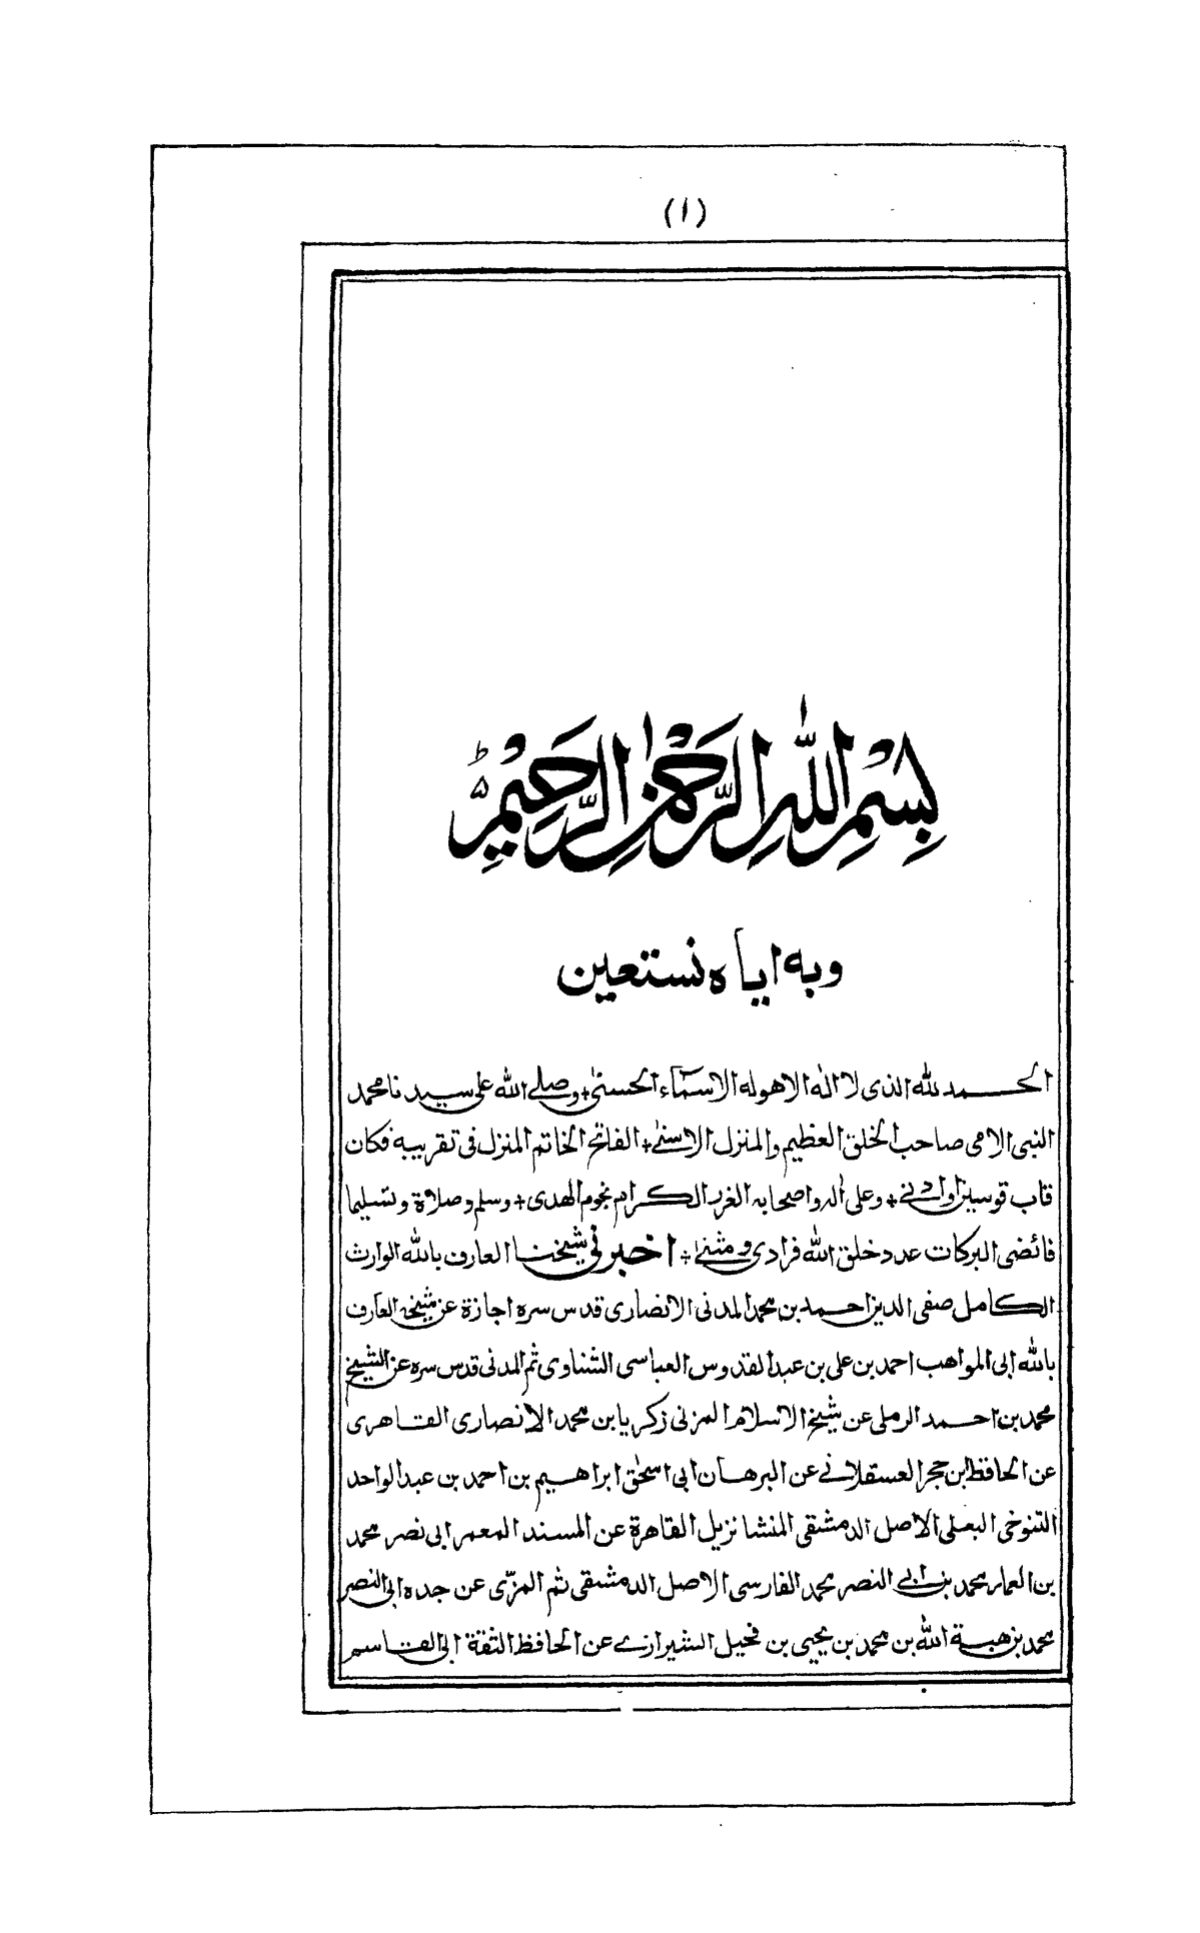 (١)
بِسْمِ اللّٰهِ الرَّحْمٰنِ الرَّحِيْمِ ط
وبه اياه نستعين
الحمد لله الذى لا اله الا هو له الاسماء الحسنى + وصلے الله على سيدنا محمد
النبى الامى صاحب الخلق العظيم والمنزل الاسنے + الفاتح الخاتم المنزل فى تقريبه فكان
قاب قوسين او ادنے + وعلى اله واصحابه الغرر الكرام نجوم الهدى + وسلم وصلاة وتسليما
فائضى البركات عدد خلق الله فرادى ومثنے + اخبرنى شيخنا العارف بالله الوارث
الكامل صفى الدين احمد بن محمد المدنى الانصارى قدس سره اجازة عن شيخه العارف
بالله ابى المواهب احمد بن على بن عبد القدوس العباسى الشناوى ثم المدنى قدس سره عن الشيخ
محمد بن احمد الرملى عن شيخ الاسلام المزنى زكريا بن محمد الانصارى القاهرى
عن الحافظ ابن حجر العسقلانے عن البرهان ابى اسحٰق ابراهيم بن احمد بن عبد الواحد
التنوخى البعلى الاصل الدمشقى المنشا نزيل القاهرة عن المسند المعمر ابى نصر محمد
بن العمار محمد بن ابے النصر محمد الفارسى الاصل الدمشقى ثم المزّى عن جده ابى النصر
محمد بن هبة الله بن محمد بن يحيى بن فحيل الشيرازے عن الحافظ الثقة ابى القاسم